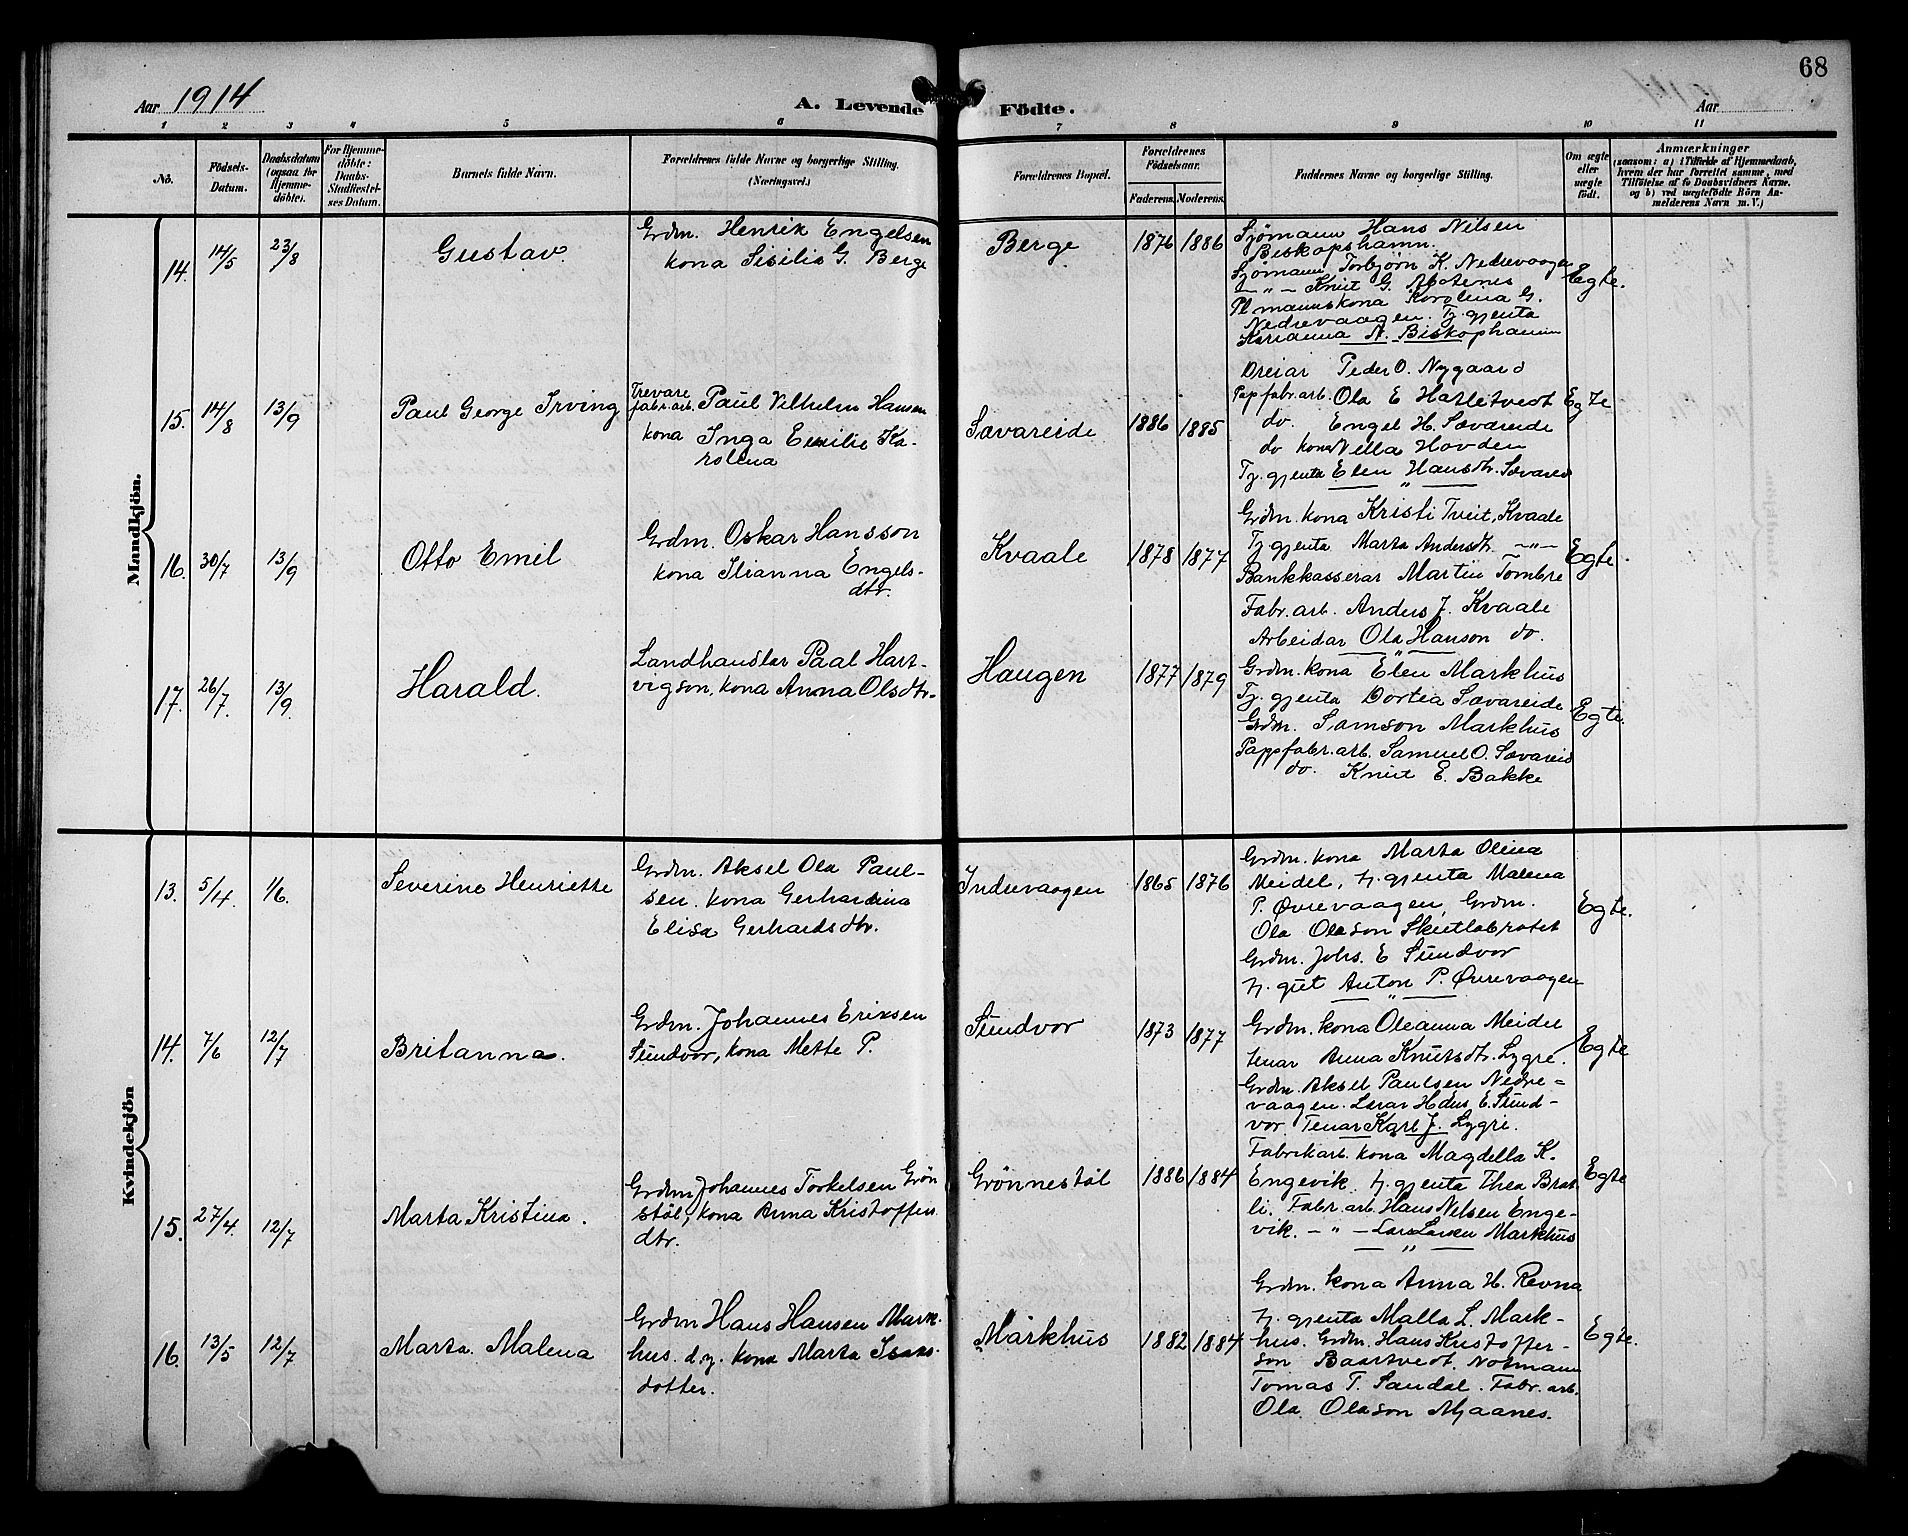 68
Aar 1914
A. Levende Födte.
Aar
1 2 3 4 5 6 7 8 9 10 11
No.
Födsels-
Datum.
Daabsdatum
(ogsaa for
Hjemme-
döbte).
For Hjemme-
döbte:
Daabs-
Stadfæstel-
ses Datum.
Barnets fulde Navn.
Forældrenes fulde Navne og borgerlige Stilling.
(Næringsvei.)
Forældrenes Bopæl.
Forældrenes
Födselsaar.
Faderens. Moderens.
Faddernes Navne og borgerlige Stilling.
Om ægte
eller
uægte
födt.
Anmærkninger
(saasom: a) i Tilfælde af Hjemmedaab,
hvem der har forrettet samme, med
Tilföielse af to Daabsvidners Navne,
og b) ved uægtefödte Börn An-
melderens Navn m. V.)
Mandkjön.
14. 14/5 23/8
Gustav.
Grdm. Henrik Engelsen
kona Sisilia G. Berge
Berge
1876 1886
Sjømann Hans Nilsen
Biskopshamn.
Sjømann Torbjørn K. Nedrevaagen
— " — Knut G.
Pl mannskona Karolina G.
Nedrevaagen. Tj. gjenta
A. Biskophamn
Egte.
15. 14/8 13/9
Paul George Irving
Trevare
fabr.arb. Paul Vilhelm Hansen
kona Inga Emilie Ka-
rolina
Sævareide
1886 1885
Dreiar Peder O. Nygaard
Papfabr.arb. Ola E Hatletvedt
do. Engel H. Sævareide
do kona Vella Hovden
Tj. gjenta Elen Hansdtr. Sævareid
Egte
16. 30/7 13/9
Otto Emil
Grdm. Oskar Hansson
kona Ilianna Engels-
dtr.
Kvaale
1878 1877
Grdm. kona Kristi Tveit, Kvaale
Tj gjenta Marta Andersdtr. —"—
Bankkasserar Martin Tombre
Fabr.arb. Anders J. Kvaale
Arbeidar Ola Hanson do.
Egte
17. 26/7. 13/9.
Harald.
Landhandlar Paal Hart-
vigson, kona Anna Olsdtr.
Haugen
1877 1879
Grdm. kona Elen Markhus
Tj. gjenta Dortea Sævareide
Grdm. Samson Markhus
Pappfabr.arb. Samuel O. Sævareid
do. Knut E. Bakke
Egte.
Kvindekjön
13. 5/4. 1/6.
Severine Henriette
Grdm. Aksel Ola Paul-
sen. kona Gerhardina
Elisa Gerhardsdtr.
Indrevaagen
1865 1876
Grdm. kona Marta Olina
Meidel, tj. gjenta Malena
P. Øvrevaagen, Grdm.
Ola Olason Skutlabrotet
Grdm. Johs. E Sundvor
tj. gut Anton P. Øvrevaagen
Egte.
14. 7/6 12/7
Britanna.
Grdm. Johannes Eriksen
Sundvor, kona Mette P.
Sundvor
1873 1877
Grdm. kona Oleanna Meidel
tenar Anna Knutsdtr. Lygre.
Grdm. Aksel Paulsen Nedre-
vaagen. Lærar Hans E. Sund-
vor. Tenar Karl J. Lygre.
Egte
15. 27/4. 12/7
Marta Kristina.
Grdm Johannes Torkelsen Grön
støl, kona Anna Kristoffers
dtr.
Grønnestøl
1886 1884
Fabrikarb. kona Magdella K.
Engevik. tj. gjenta Thea Brat-
li. Fabr. arb. Hans Nilsen Enge-
vik. — " — Lars Larsen Markhus
Egte
16. 13/5 12/7
Marta Malena
Grdm Hans Hansen Mark-
hus. d.y. kona Marta Isaks-
dotter.
Markhus
1882 1884
Grdm. kona Anna H. Revna
tj. gjenta Malla L. Mark-
hus. Grdm. Hans Kristoffer-
son Baartvedt. Notmann
Tomas T. Sandal. Fabr. arb.
Ola Olason Mjaanes.
Egte.